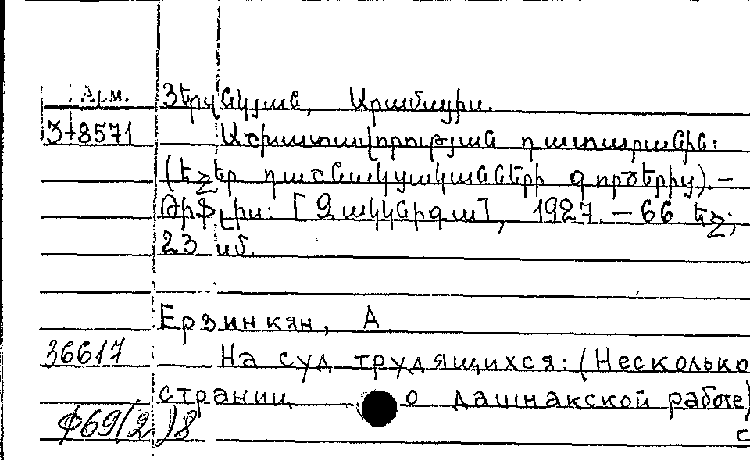 Арм.
Երզնկյան, Արամայիս.
3-8571 Աշխատավորության դատաստանին:
(Էջեր դաշնակցականների գործերից).—
Թիֆլիս: [Զակկնիգա], 1927. — 66 էջ;
23 սմ.
Ерзинкян, А
36617 На суд трудящихся: (Несколько
страниц о дашнакской работе)
ф69(2)8 с